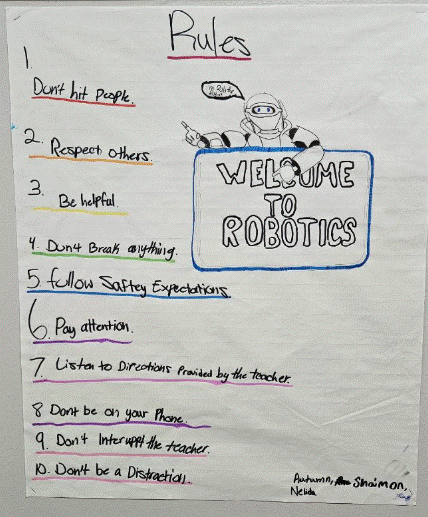 Rules
1.
Don't hit people.
2. Respect others.
3. Be helpful.
4. Dont Break anything.
5 follow Saftey Expectations
6. Pay attention.
7. Listen to Directions Provided by the teacher.
8 Dont be on your Phone.
9. Don't Interuppt the teacher.
10. Don't be a Distraction.
WELCOME
TO
ROBOTICS
Autumn, Shaimon,
Nelida